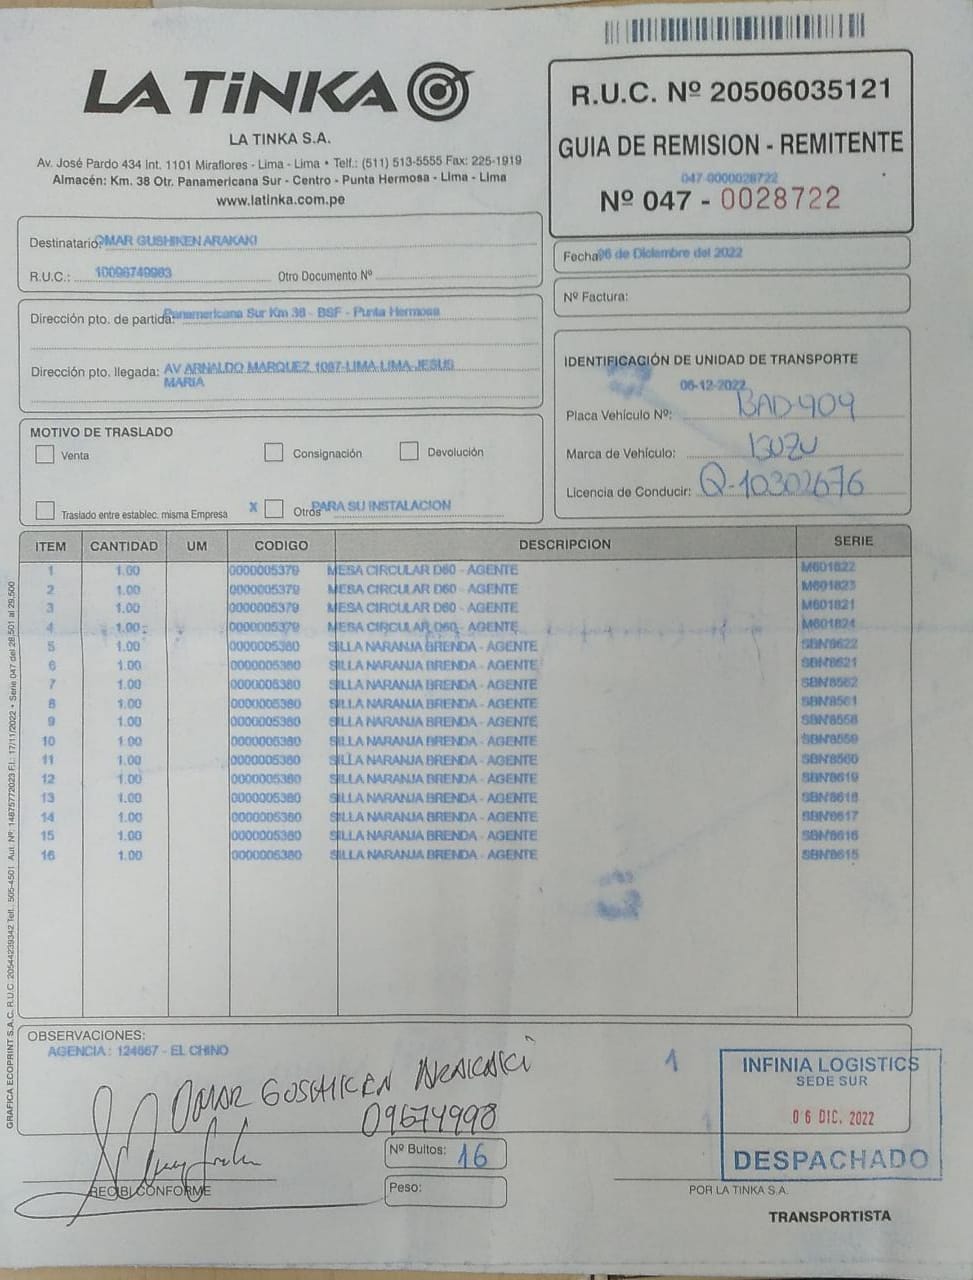 LA TiNKA
LA TINKA S.A.
Av. José Pardo 434 Int. 1101 Miraflores - Lima - Lima • Telf.: (511) 513-5555 Fax: 225-1919
Almacén: Km. 38 Otr. Panamericana Sur - Centro - Punta Hermosa - Lima - Lima
www.latinka.com.pe
R.U.C. Nº 20506035121
GUIA DE REMISION - REMITENTE
047-0000028722
Nº 047 - 0028722
Destinatario: OMAR GUSHIKEN ARAKAKI
R.U.C.: Otro Documento Nº
Fecha: 06 de Diciembre del 2022
Nº Factura:
Dirección pto. de partida: Panamericana Sur Km 38 - BSF - Punta Hermosa
Dirección pto. llegada: AV ARNALDO MARQUEZ 1087-LIMA-LIMA-JESUS
MARIA
IDENTIFICACIÓN DE UNIDAD DE TRANSPORTE
06-12-2022
Placa Vehículo Nº: BAD909
Marca de Vehículo: ISUZU
Licencia de Conducir: Q-10302676
MOTIVO DE TRASLADO
Venta Consignación Devolución
Traslado entre establec. misma Empresa X Otros PARA SU INSTALACION
ITEM CANTIDAD UM CODIGO DESCRIPCION SERIE
1 1.00 0000005379 MESA CIRCULAR D60 - AGENTE M601822
2 1.00 0000005379 MESA CIRCULAR D60 - AGENTE M601823
3 1.00 0000005379 MESA CIRCULAR D60 - AGENTE M601821
4 1.00 0000005379 MESA CIRCULAR D60 - AGENTE M601824
5 1.00 0000005380 SILLA NARANJA BRENDA - AGENTE SBN8622
6 1.00 0000005380 SILLA NARANJA BRENDA - AGENTE SBN8621
7 1.00 0000005380 SILLA NARANJA BRENDA - AGENTE SBN8562
8 1.00 0000005380 SILLA NARANJA BRENDA - AGENTE SBN8561
9 1.00 0000005380 SILLA NARANJA BRENDA - AGENTE SBN8558
10 1.00 0000005380 SILLA NARANJA BRENDA - AGENTE SBN8559
11 1.00 0000005380 SILLA NARANJA BRENDA - AGENTE SBN8560
12 1.00 0000005380 SILLA NARANJA BRENDA - AGENTE SBN8619
13 1.00 0000005380 SILLA NARANJA BRENDA - AGENTE SBN8618
14 1.00 0000005380 SILLA NARANJA BRENDA - AGENTE SBN8617
15 1.00 0000005380 SILLA NARANJA BRENDA - AGENTE SBN8616
16 1.00 0000005380 SILLA NARANJA BRENDA - AGENTE SBN8615
GRAFICA ECOPRINT S.A.C. R.U.C. 20544239342 Telf.: 505-4501 Aut. Nº: 14875772023 F.I.: 17/11/2022 • Serie 047 del 28,501 al 29,500
OBSERVACIONES:
AGENCIA: 124667 - EL CHINO
OMAR GUSHIKEN ARAKAKI
09674998
1
INFINIA LOGISTICS
SEDE SUR
06 DIC. 2022
DESPACHADO
Nº Bultos: 16
RECIBI CONFORME
Peso:
POR LA TINKA S.A.
TRANSPORTISTA